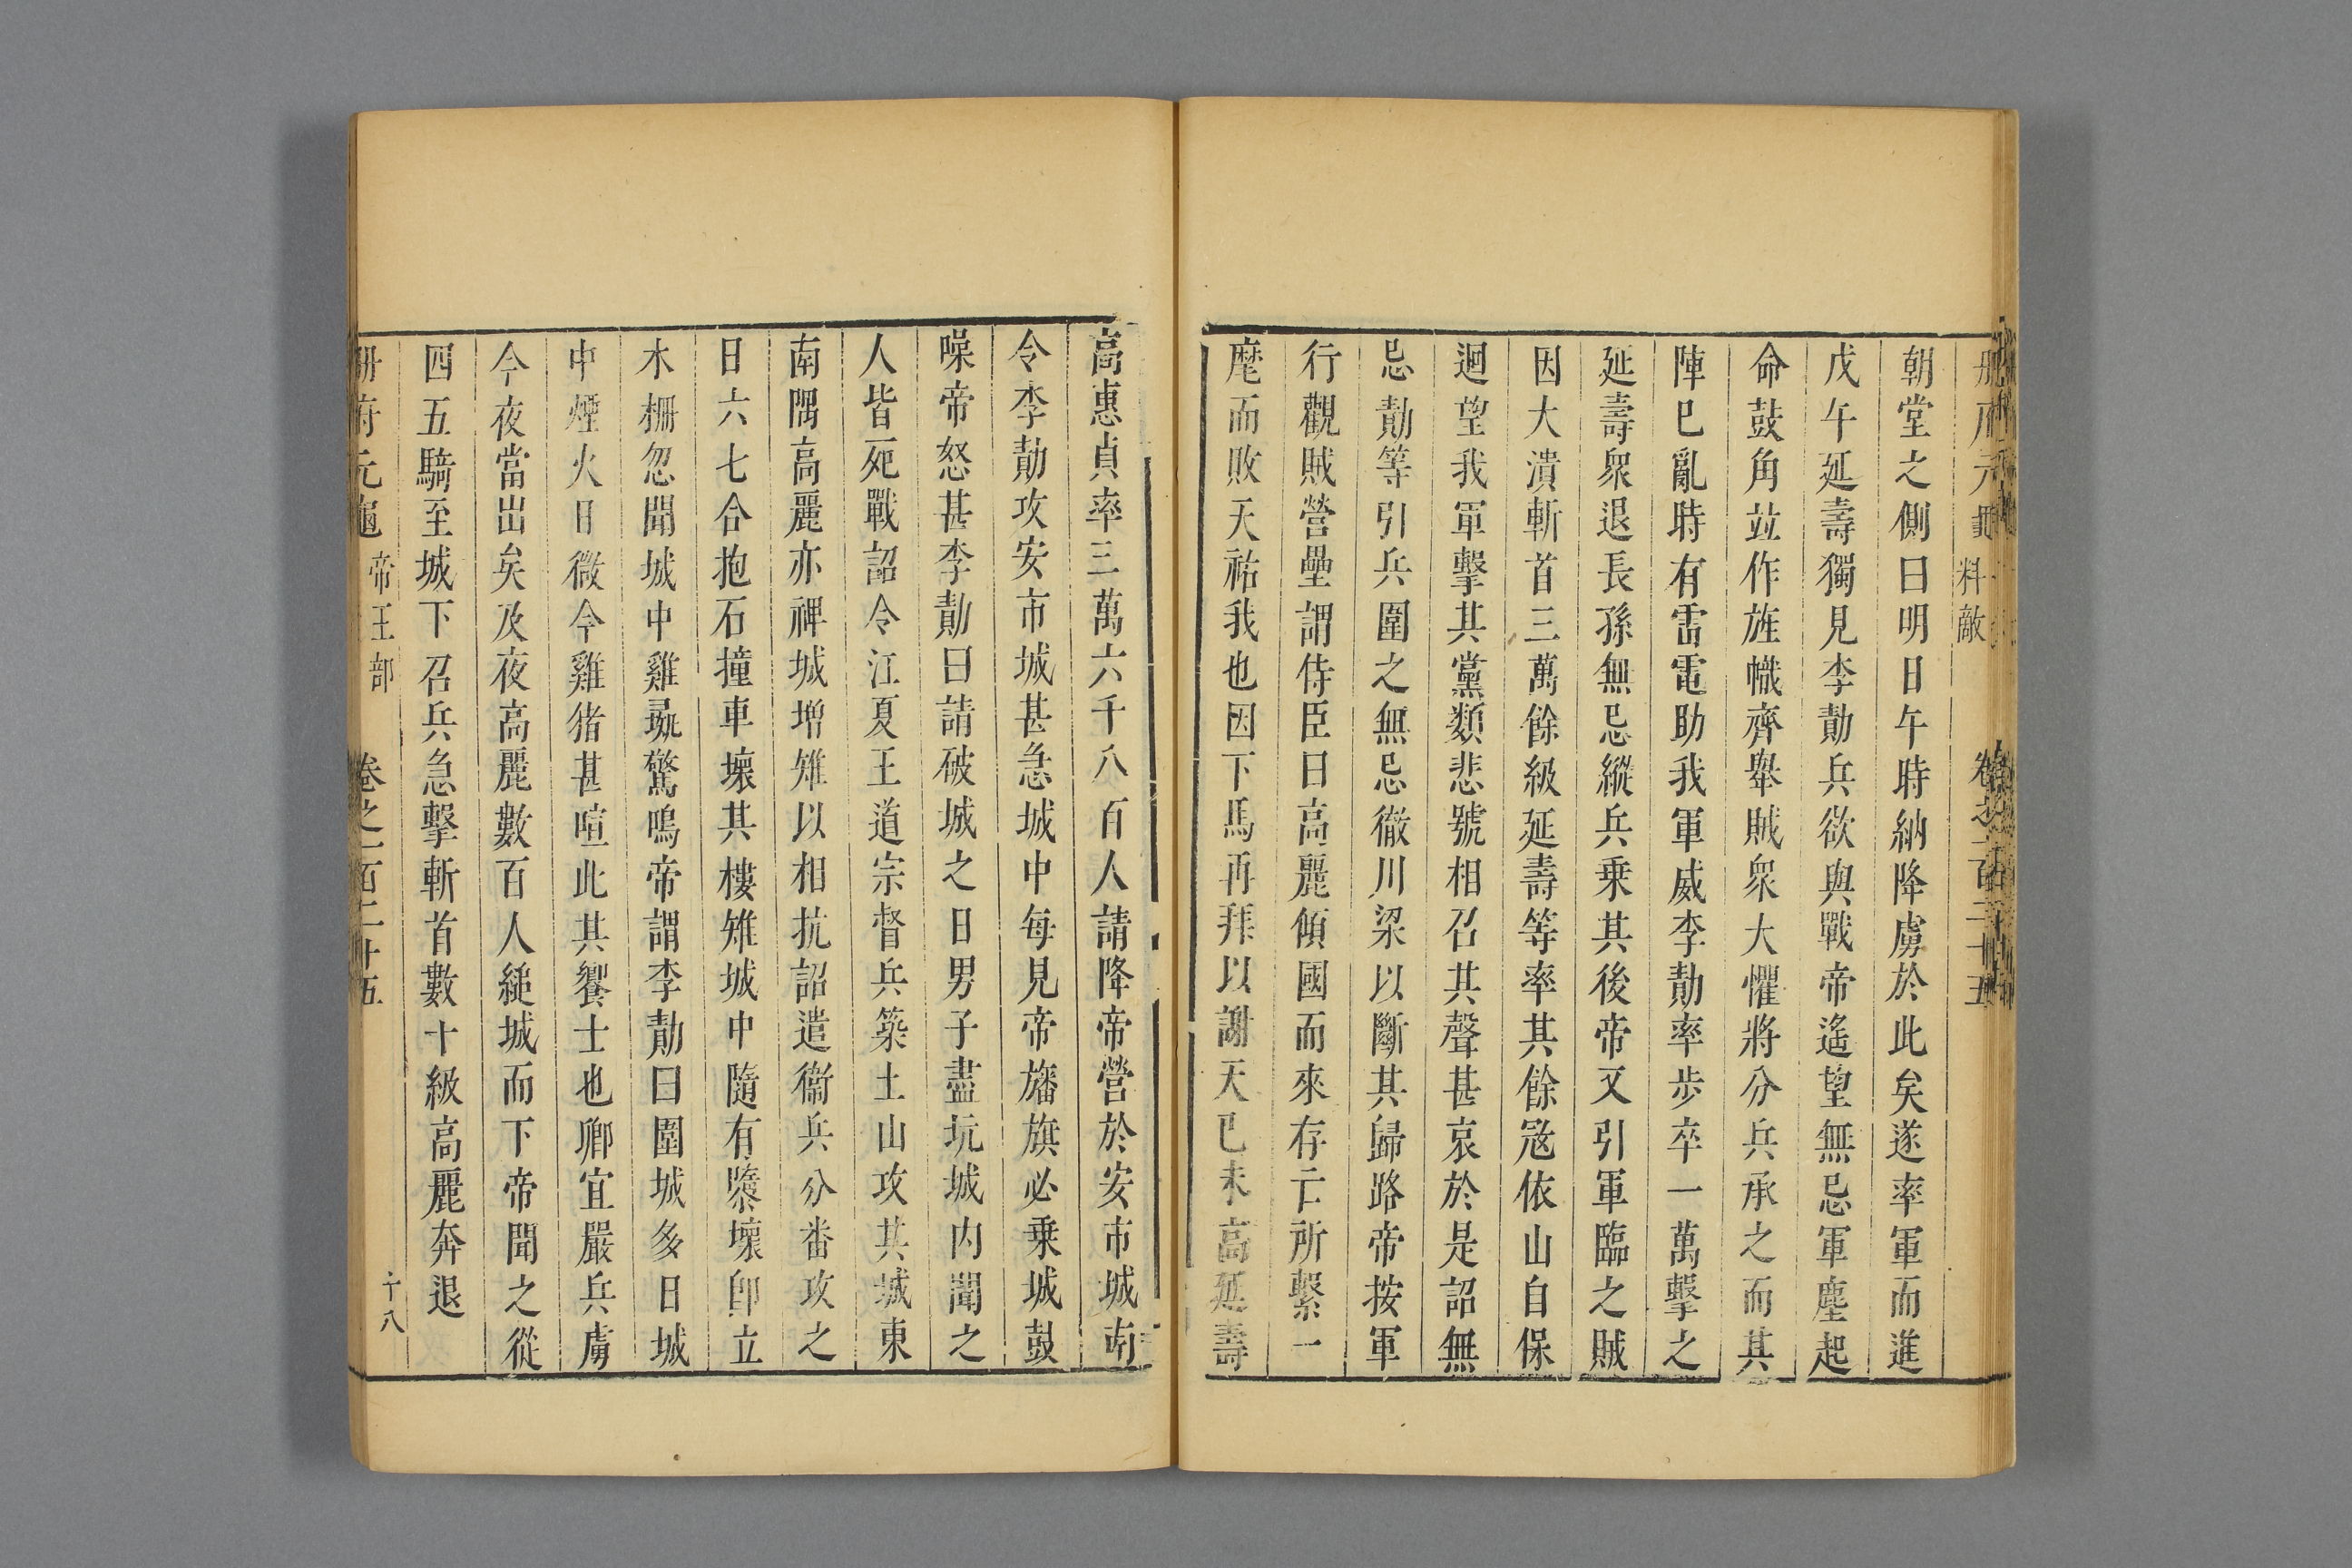 冊府元龜 料敵 卷之一百二十五
朝堂之側曰明日午時納降虜於此矣遂率軍而進
戊午延壽獨見李勣兵欲與戰帝遙望無忌軍塵起
命鼓角竝作旌幟齊舉賊衆大懼將分兵承之而其
陣巳亂時有雷電助我軍威李勣率步卒一萬擊之
延壽衆退長孫無忌縱兵乗其後帝又引軍臨之賊
因大潰斬首三萬餘級延壽等率其餘冦依山自保
迴望我軍擊其黨類悲號相召其聲甚哀於是詔無
忌勣等引兵圍之無忌徹川梁以斷其歸路帝按軍
行觀賊營壘謂侍臣曰高麗傾國而來存亡所繫一
麾而敗天祐我也因下馬再拜以謝天巳未高延壽
高惠貞率三萬六千八百人請降帝營於安市城南
令李勣攻安市城甚急城中每見帝旛旗必乗城鼓
噪帝怒甚李勣曰請破城之日男子盡坑城內聞之
人皆死戰詔令江夏王道宗督兵築土山攻其城東
南隅高麗亦禆城增雉以相抗詔遣衞兵分番攻之
日六七合抱石撞車壞其樓雉城中隨有隳壞卽立
木柵忽聞城中雞彘驚鳴帝謂李勣曰圍城多日城
中煙火日微今雞猪甚喧此其饗士也卿宜嚴兵虜
今夜當出矣及夜高麗數百人縋城而下帝聞之從
四五騎至城下召兵急擊斬首數十級高麗奔退
冊府元龜 帝王部 卷之一百二十五 十八